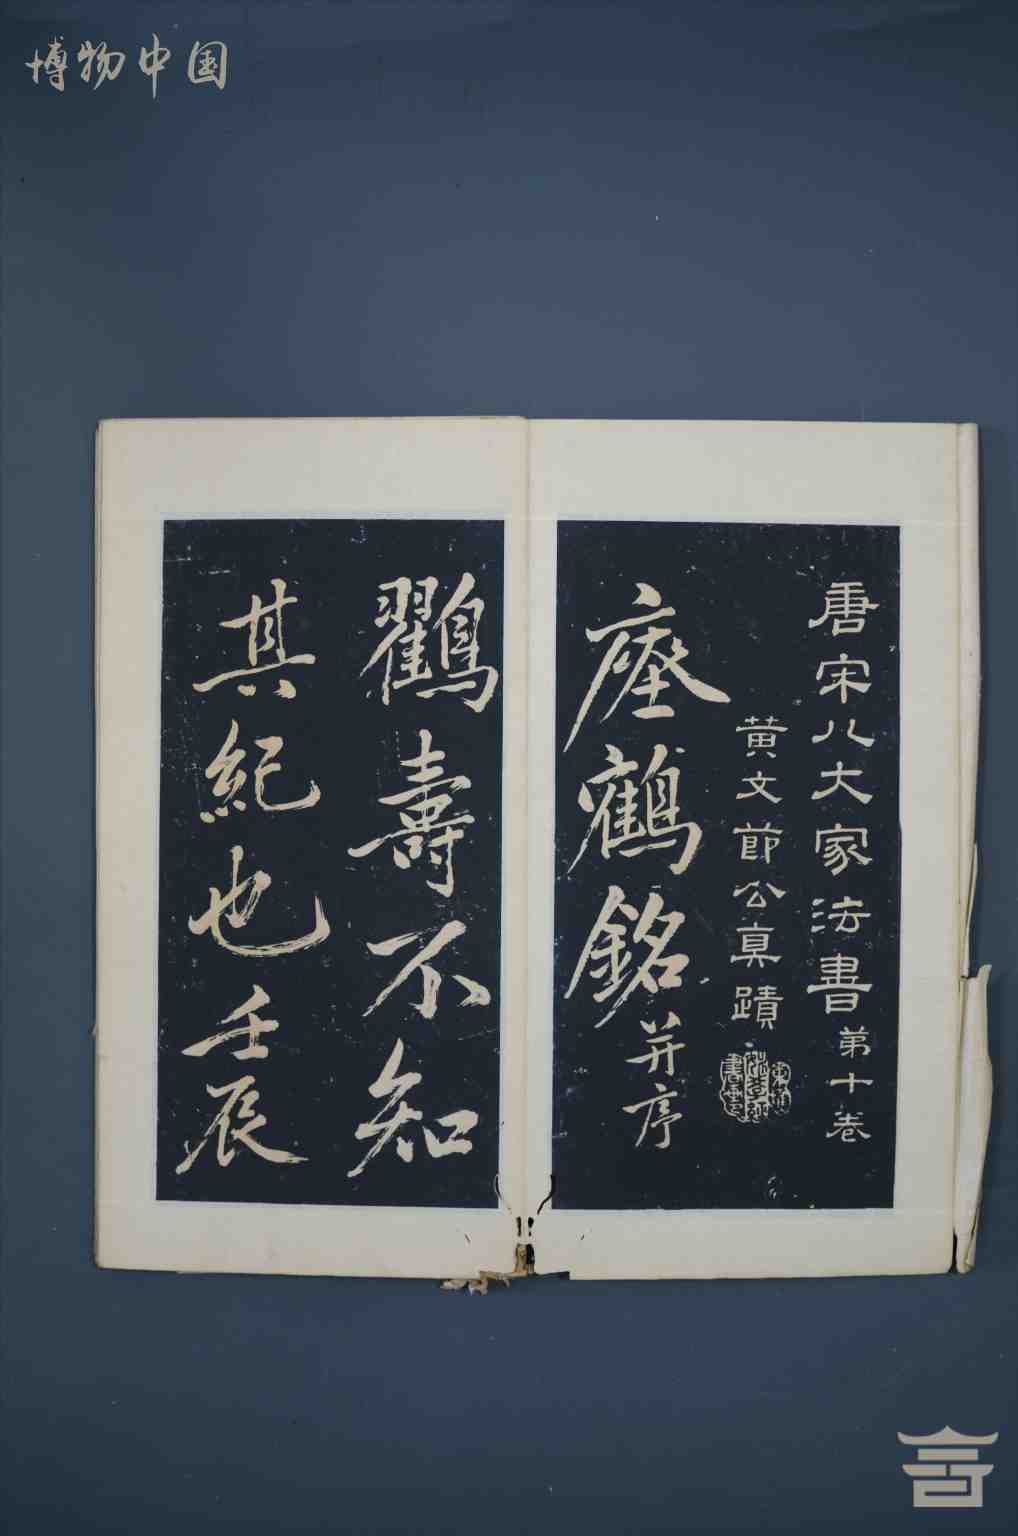 博物中国
唐宋八大家法書第十卷
黄文節公真蹟
瘞鶴銘并序
鸖壽不知
其紀也壬辰